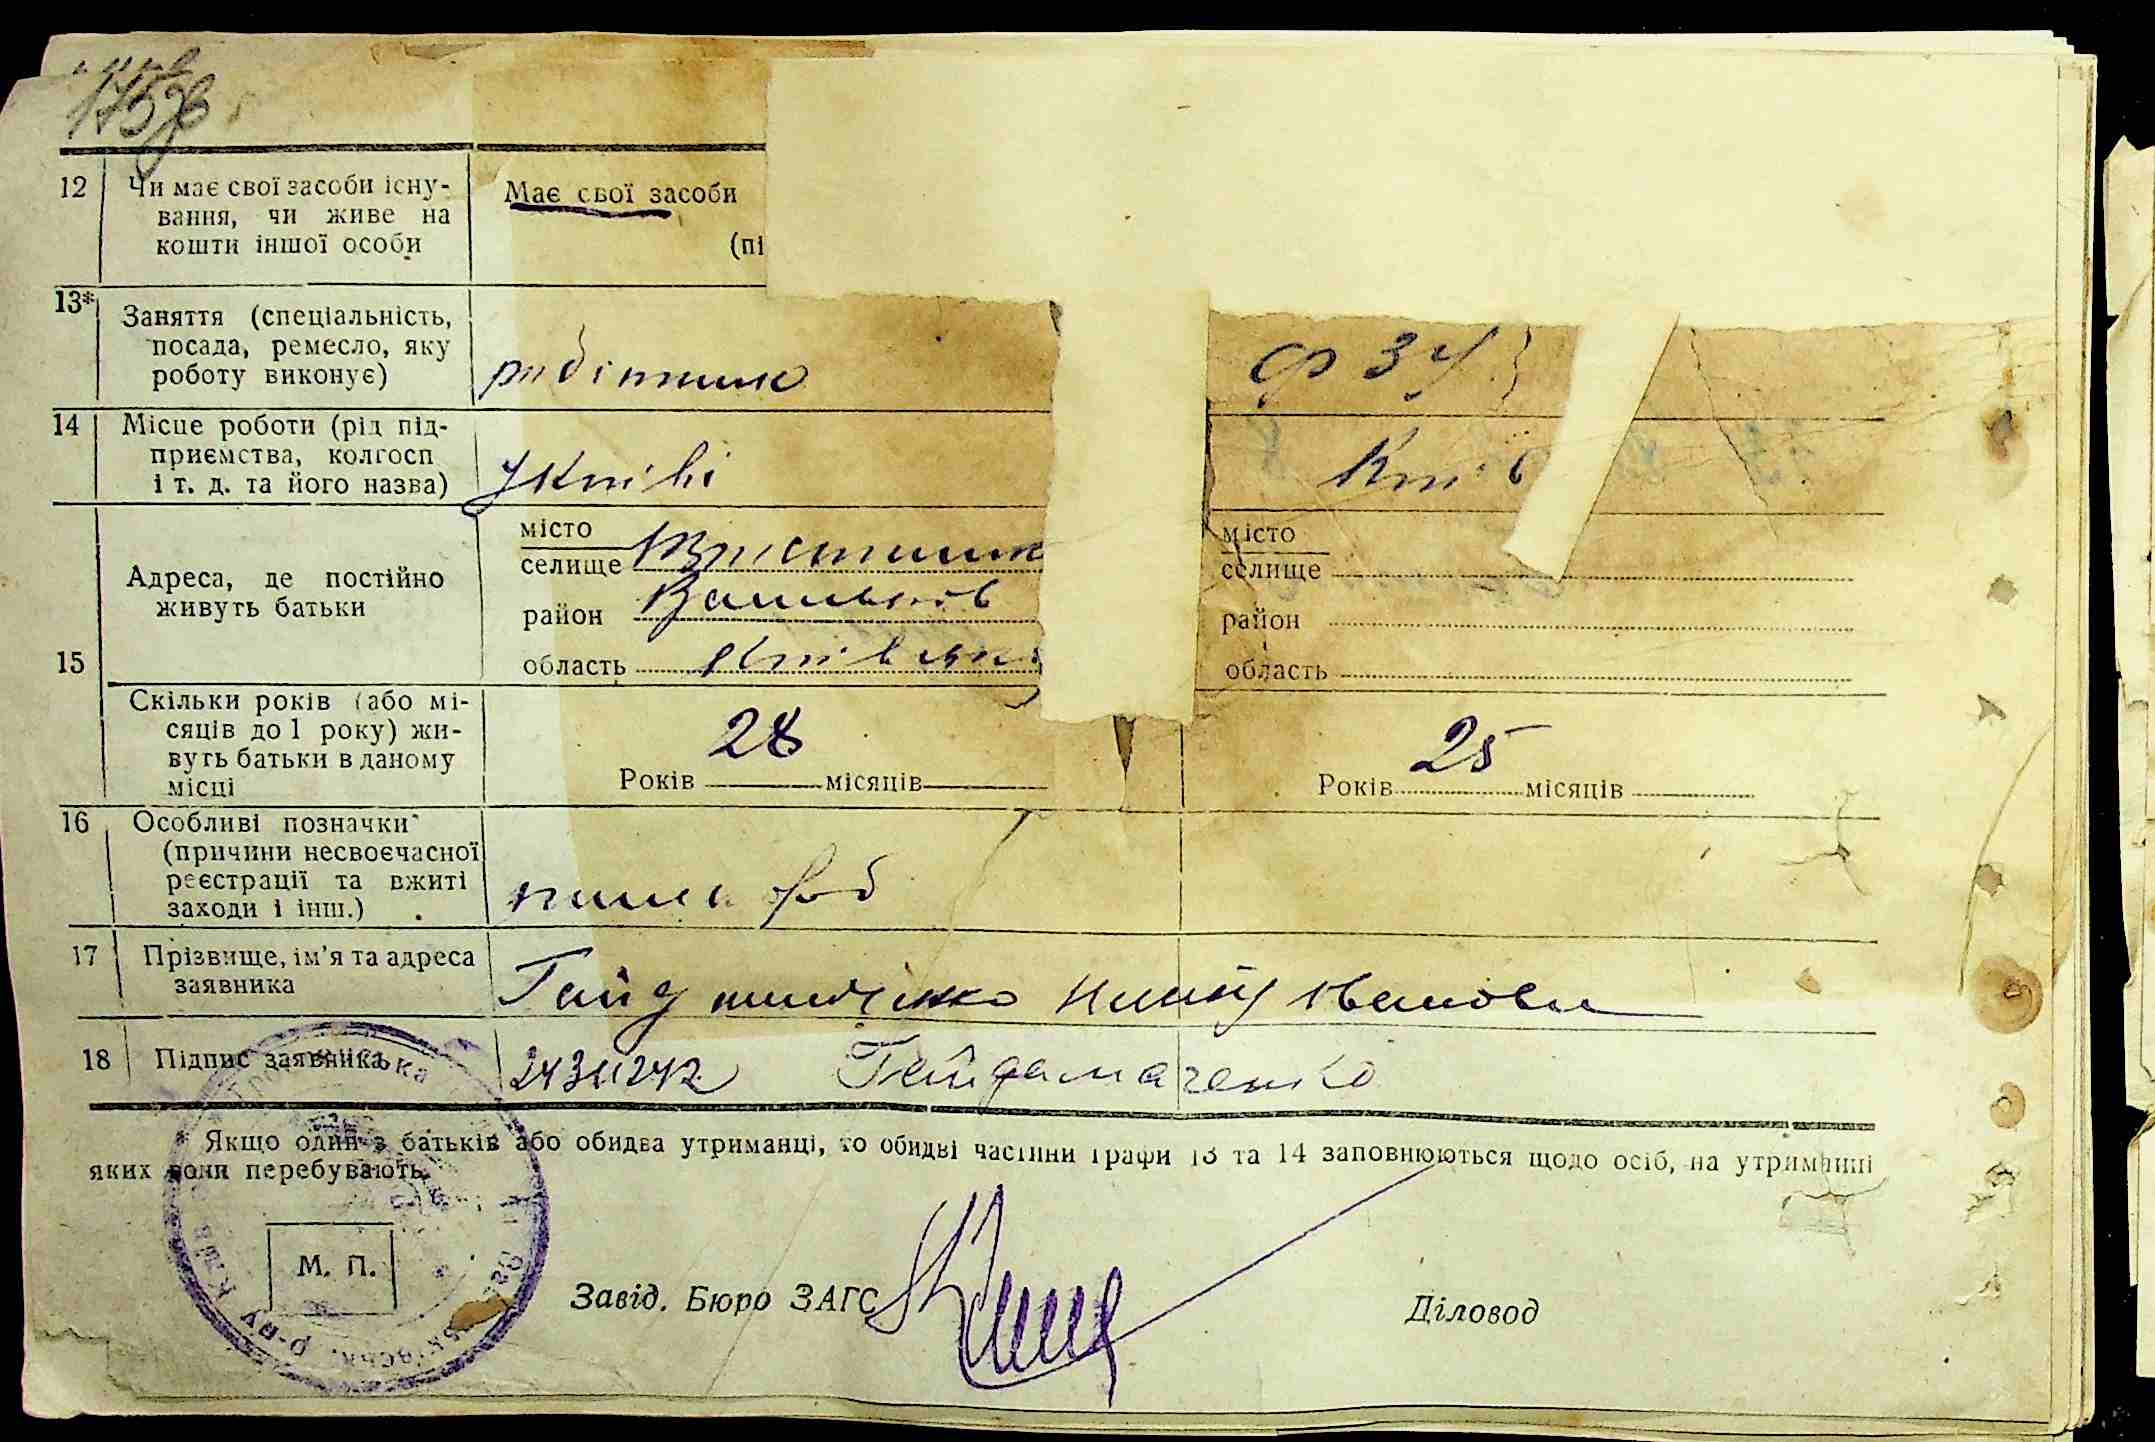 175
12 Чи має свої засоби існу-
вання, чи живе на
кошти іншої особи
Має свої засоби
(пі
13* Заняття (спеціальність,
посада, ремесло, яку
роботу виконує)
робітник ФЗУ
14 Місце роботи (рід під-
приємства, колгосп
і т. д. та його назва)
У Київі Київ
15 Адреса, де постійно
живуть батьки
місто
селище
район Васильків
область Київська
місто
селище
район
область
Скільки років (або мі-
сяців до 1 року) жи-
вуть батьки в даному
місці
Років 28 місяців
Років 25 місяців
16 Особливі позначки
(причини несвоєчасної
реєстрації та вжиті
заходи і інш.)
17 Прізвище, ім'я та адреса
заявника
Гайдамаченко Іванова
18 Підпис заявника
Гайдамаченко
Якщо один з батьків або обидва утриманці, то обидві частини графи 13 та 14 заповнюються щодо осіб, на утриманні
яких вони перебувають.
М. П.
Завід. Бюро ЗАГС
Діловод